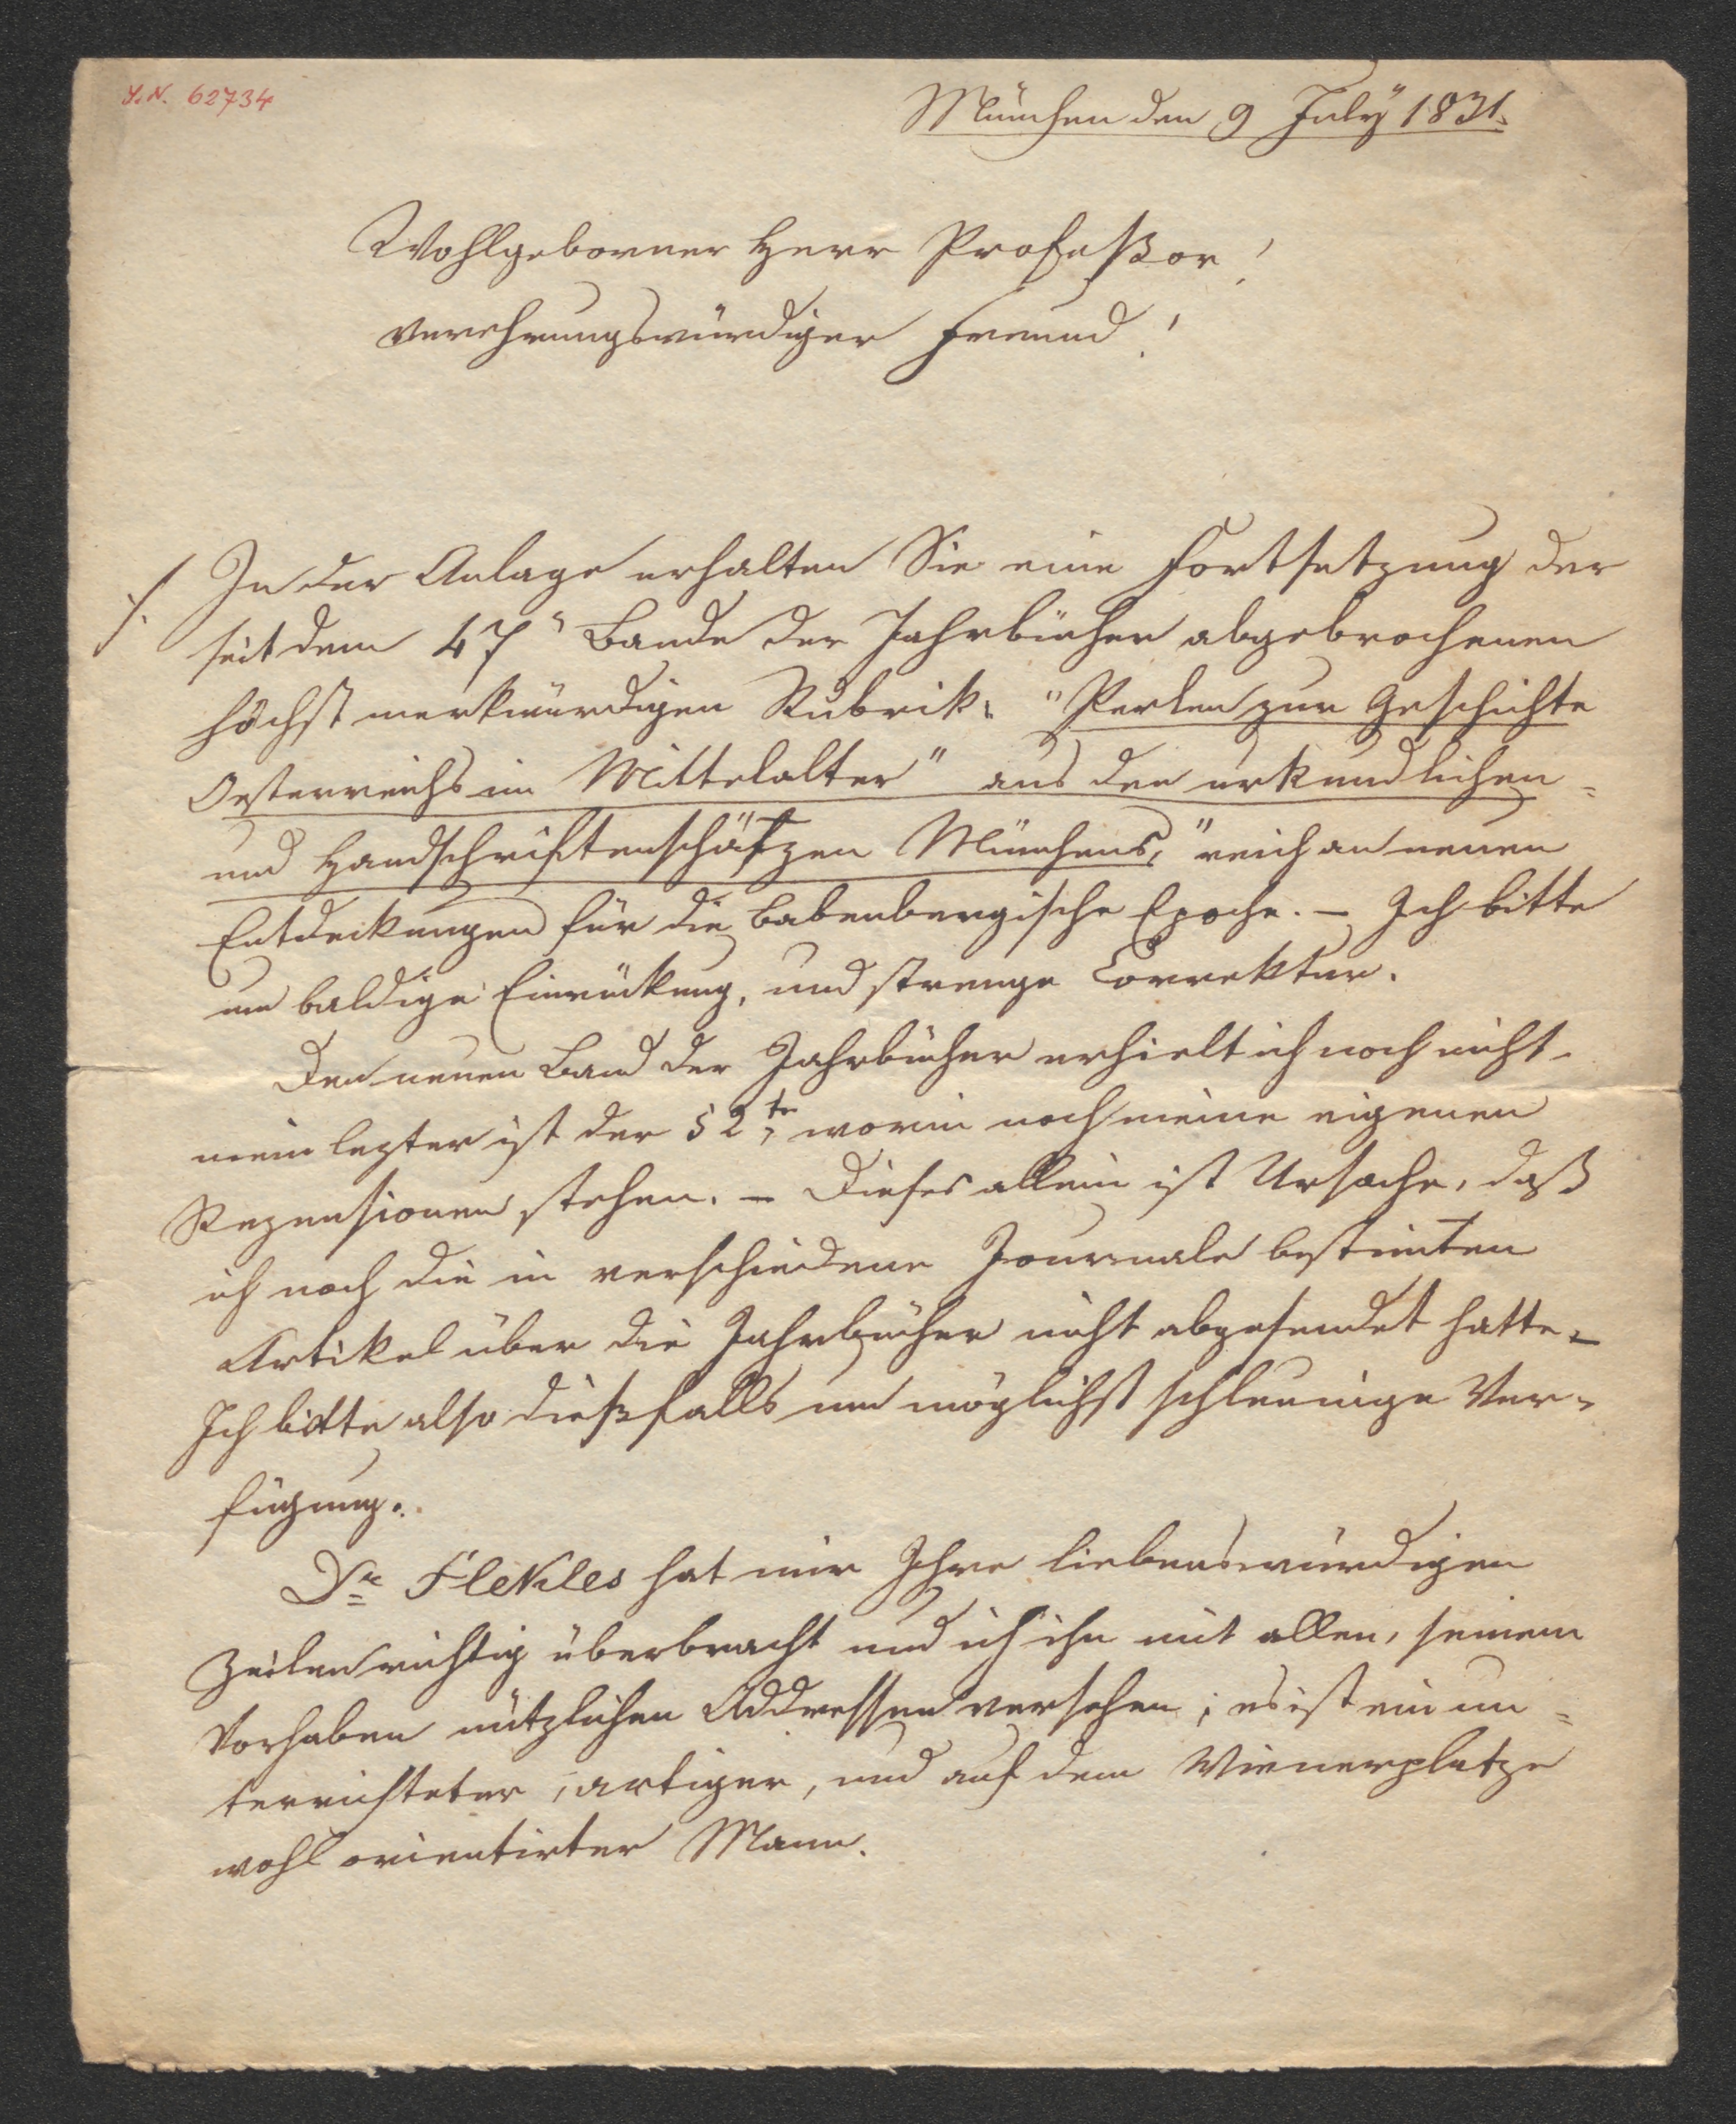 J. N. 62734
München den 9 July 1831.
Wohlgeborner Herr Profeßor!
verehrungswürdiger Freund!
./. In der Anlage erhalten Sie eine Fortsetzung der
seit dem 47" Bande der Jahrbücher abgebrochenen
höchst merkwürdigen Rubrik: "Perlen zur Geschichte
Oesterreichs im Mittelalter" aus den urkundlichen=
und Handschriftenschätzen Münchens," reich an neuen
Entdeckungen für die babenbergische Epoche. – Ich bitte
um baldige Einrückung, und strenge Correktur.
Den neuen Band der Jahrbücher erhielt ich noch nicht.
mein lezter ist der 52te, worin noch meine eigenen
Rezensionen stehen. – Dieses allein ist Ursache, daß
ich noch die in verschiedene Journale bestimten
Artikel über die Jahrbücher nicht abgesendet hatte. –
Ich bitte also dießfalls um möglichst schleunige Ver=
fügung.
Dr. Flekles hat mir Ihre liebenswürdigen
Zeilen richtig überbracht und ich ihn mit allen, seinem
Vorhaben nützlichen Addressen versehen; es ist ein un=
terrichteter, artiger, und auf dem Wienerplatze
wohl orientirter Mann.